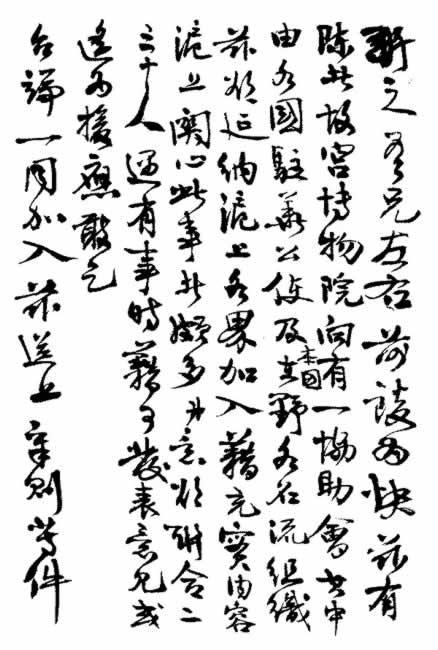 新之吾兄左右前談为快茲有
陳者故宫博物院向有一協助會其中
由各國駐華公使及本国在野各名流組織
茲擬延納滬上各界加入藉充實内容
滬上關心此事者頗多弟意擬聯合二
三十人遇有事時藉可發表意見或
遙为援應敢乞
台端一同加入茲送上章則等件